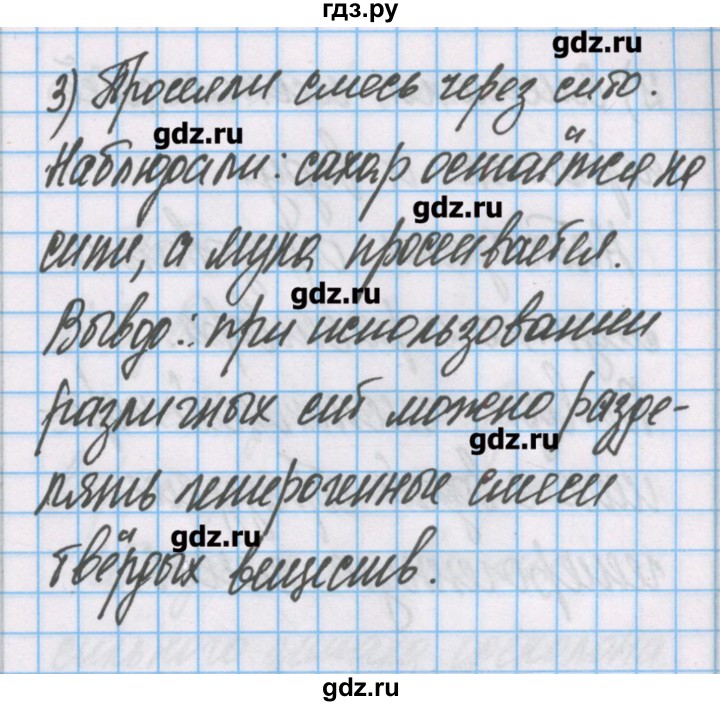 гдз.ру
gdz.ru
3) Просеяли смесь через сито.
gdz.ru
Наблюдали: сахар остаётся на
gdz.ru
сите, а мука просеивается.
gdz.ru
Вывод: при использовании
различных сит можно разде-
gdz.ru
лять гетерогенные смеси
gdz.ru
твёрдых веществ.
gdz.ru